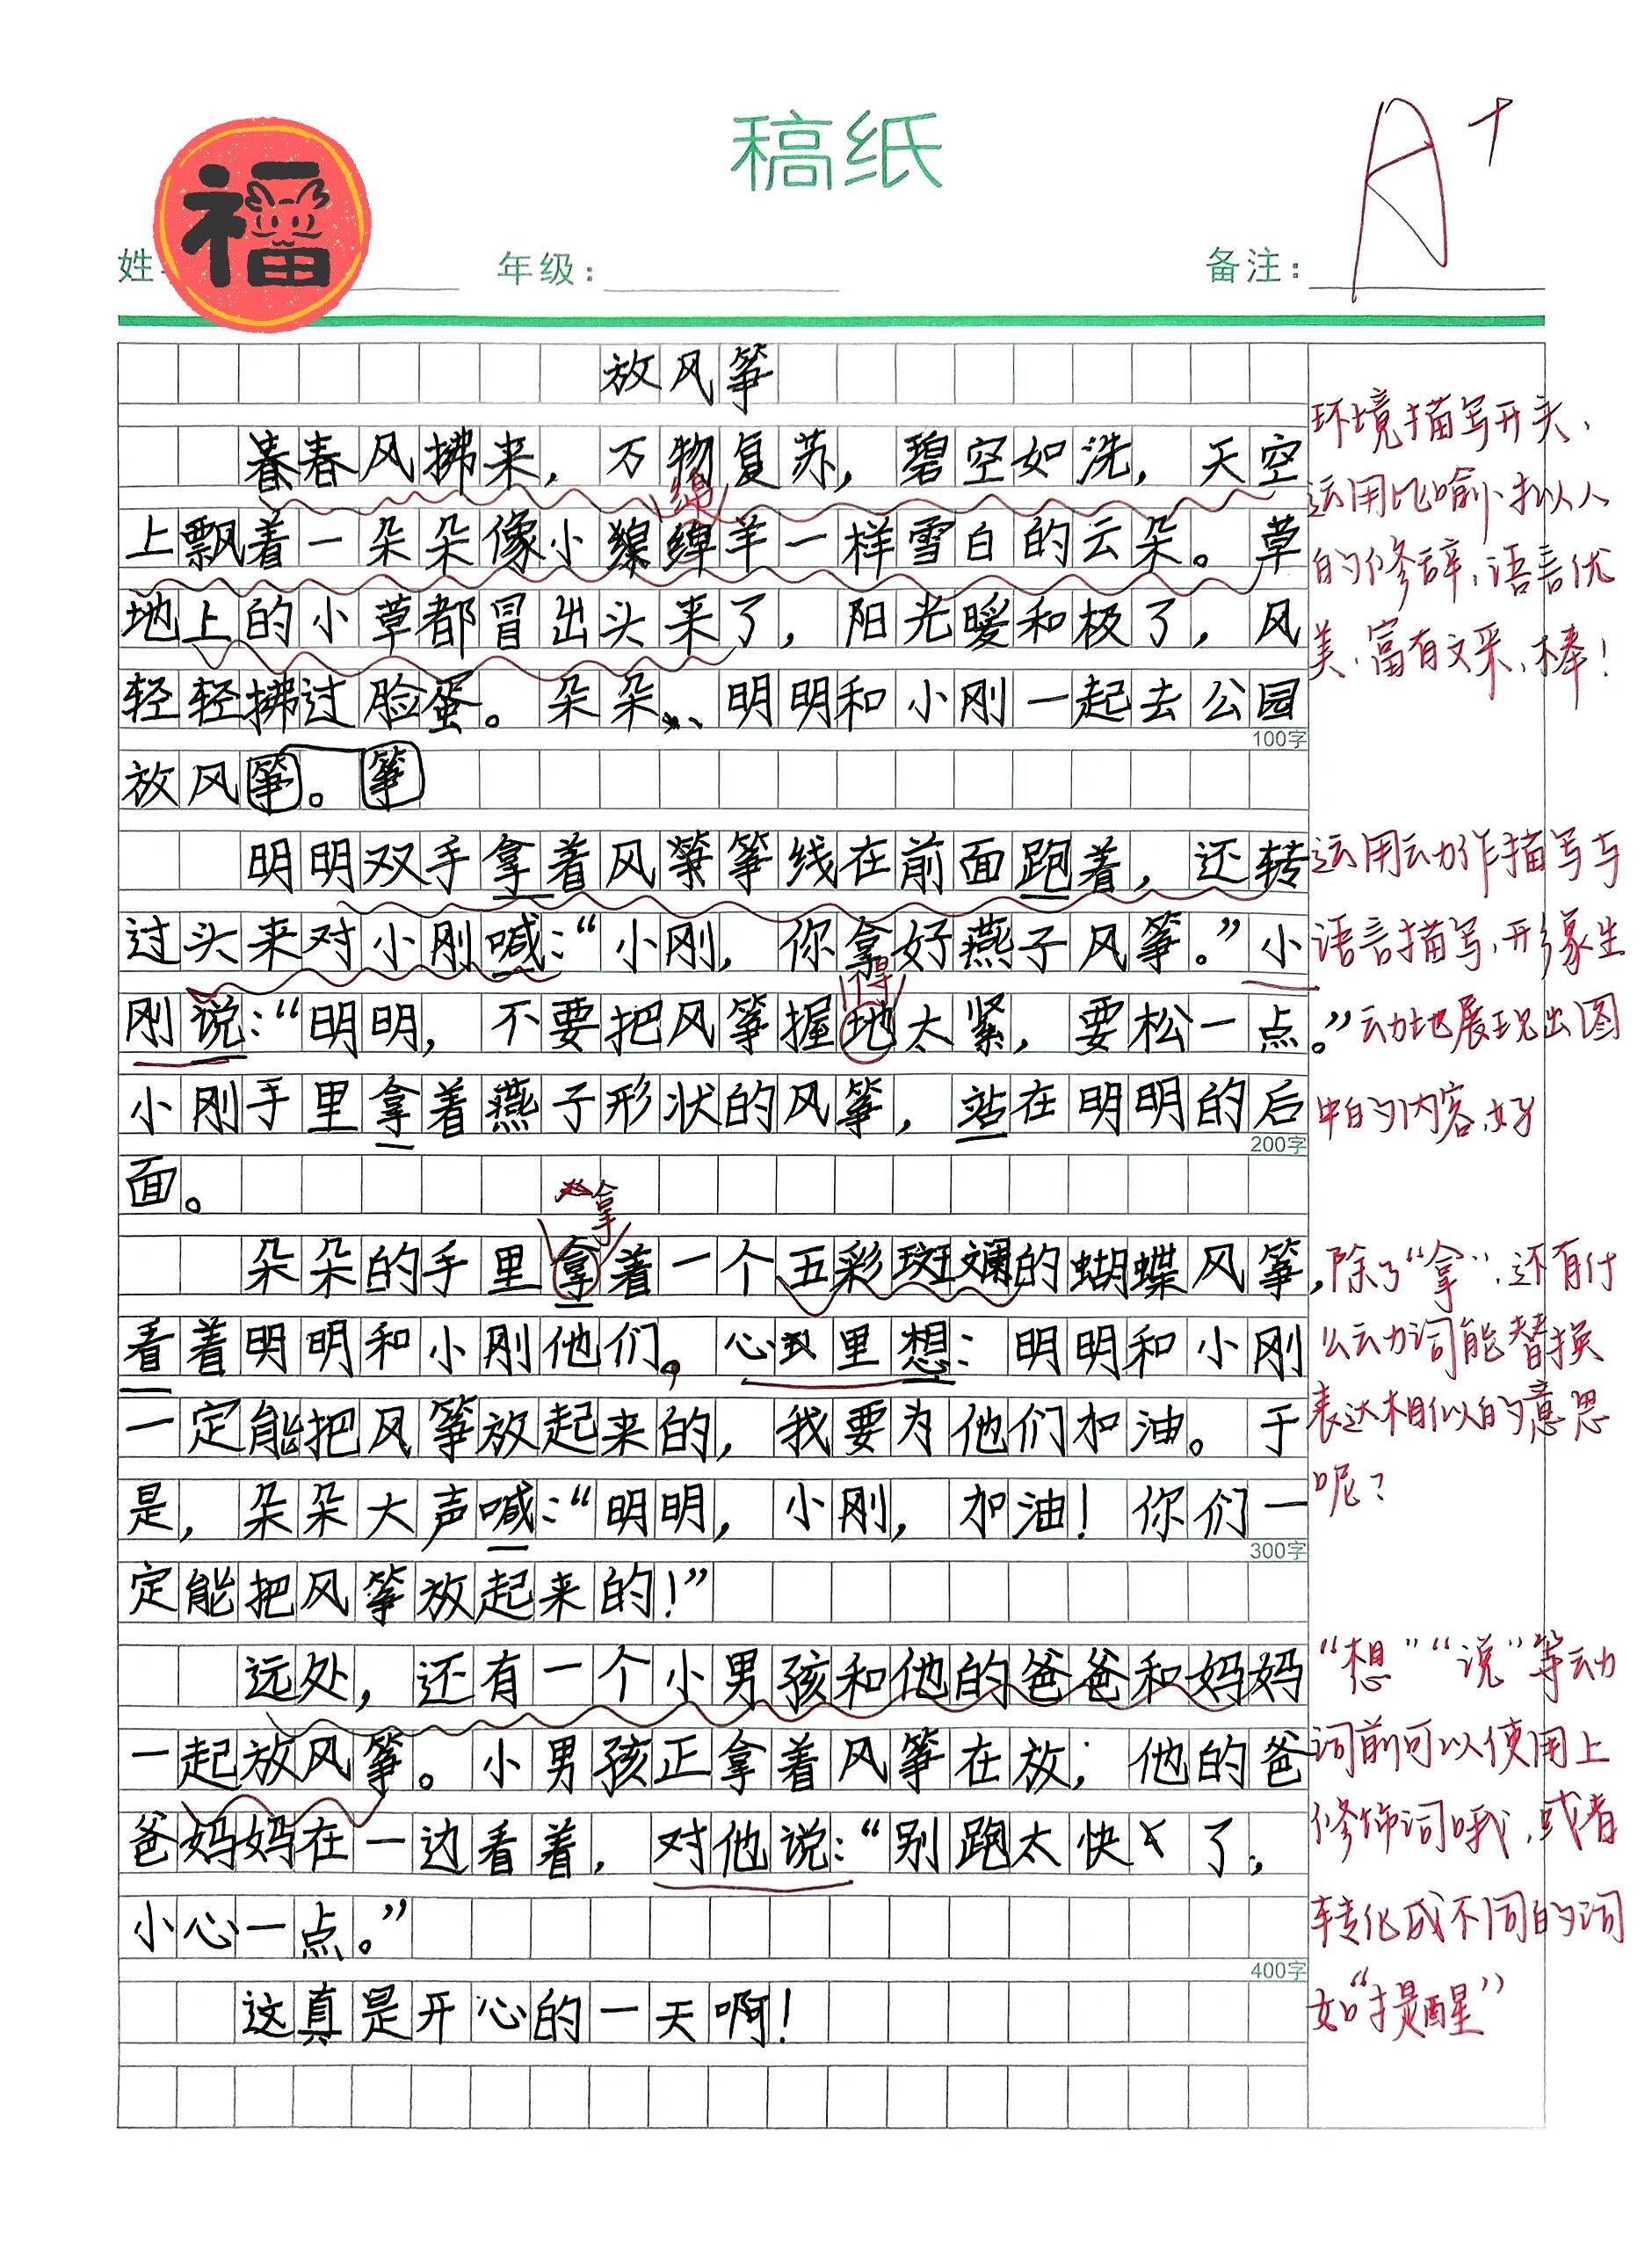 稿纸
A+
福
姓
年级：
备注：
放风筝
春风拂来，万物复苏，碧空如洗，天空
绵
上飘着一朵朵像小绵羊一样雪白的云朵。草
地上的小草都冒出头来了，阳光暖和极了，风
轻轻拂过脸蛋。朵朵、明明和小刚一起去公园
100字
放风筝。筝
明明双手拿着风筝线在前面跑着，还转
过头来对小刚喊：“小刚，你拿好燕子风筝。”小
得
刚说：“明明，不要把风筝握地太紧，要松一点。”
小刚手里拿着燕子形状的风筝，站在明明的后
200字
面。
拿
朵朵的手里拿着一个五彩斑斓的蝴蝶风筝，
看着明明和小刚他们，心里想：明明和小刚
一定能把风筝放起来的，我要为他们加油。于
是，朵朵大声喊：“明明，小刚，加油！你们一
300字
定能把风筝放起来的！”
远处，还有一个小男孩和他的爸爸和妈妈
一起放风筝。小男孩正拿着风筝在放；他的爸
爸妈妈在一边看着，对他说：“别跑太快了，
小心一点。”
400字
这真是开心的一天啊！
环境描写开头、
运用比喻、拟人
的修辞，语言优
美，富有文采，棒！
运用动作描写与
语言描写，形象生
动地展现出图
中的内容，好
除了“拿”，还有什
么动词能替换
表达相似的意思
呢？
“想”“说”等动
词前可以使用上
修饰词哦，或者
转化成不同的词
如“提醒”